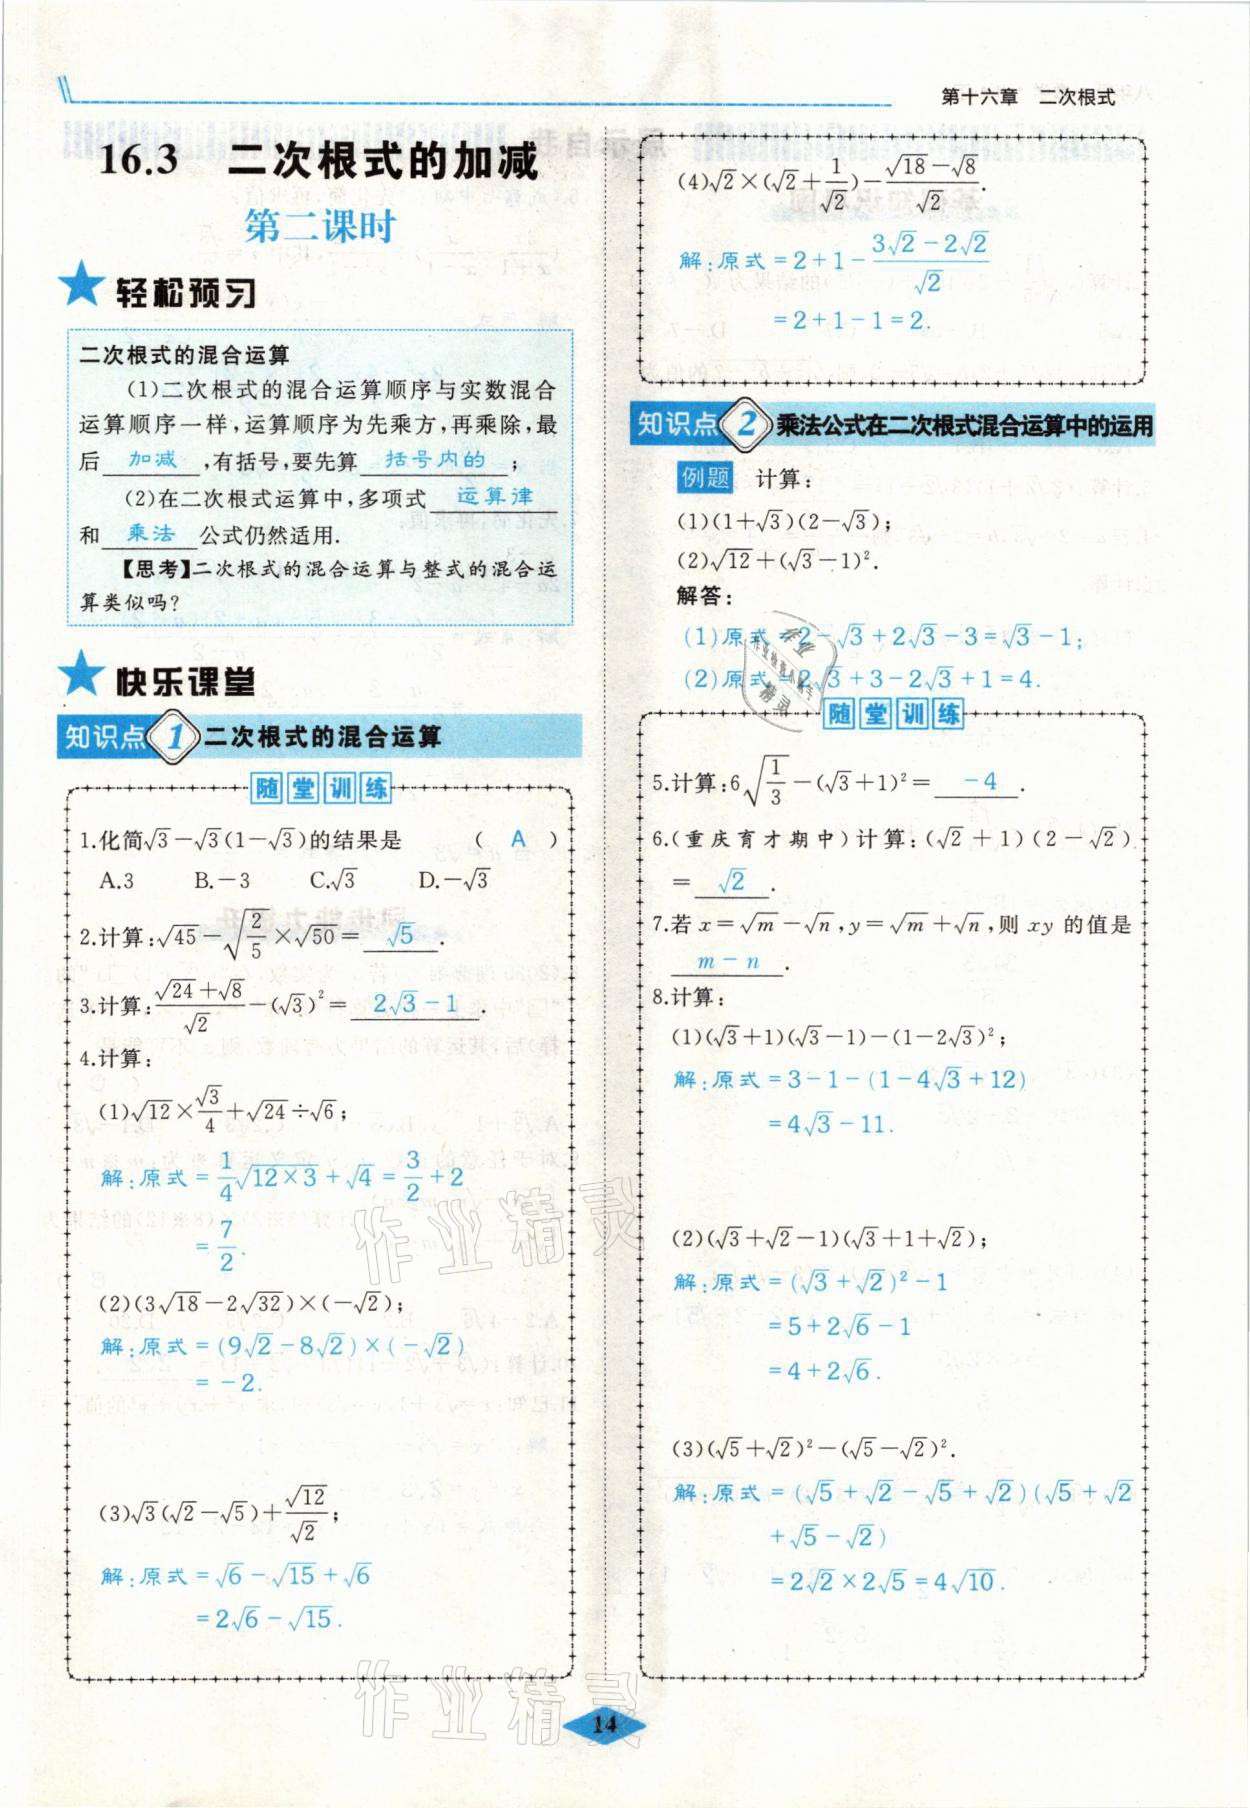 第十六章　二次根式
16.3　二次根式的加减
第二课时
轻松预习
二次根式的混合运算
(1)二次根式的混合运算顺序与实数混合
运算顺序一样,运算顺序为先乘方,再乘除,最
后 加减 ,有括号,要先算 括号内的 ;
(2)在二次根式运算中,多项式 运算律
和 乘法 公式仍然适用.
【思考】二次根式的混合运算与整式的混合运
算类似吗?
快乐课堂
知识点 1 二次根式的混合运算
随堂训练
1.化简√3-√3(1-√3)的结果是 ( A )
A.3　B.-3　C.√3　D.-√3
2.计算:√45-√(2/5)×√50= √5 .
3.计算:(√24+√8)/√2-(√3)²= 2√3-1 .
4.计算:
(1)√12×√3/4+√24÷√6;
解:原式=1/4√12×3+√4=3/2+2
=7/2.
(2)(3√18-2√32)×(-√2);
解:原式=(9√2-8√2)×(-√2)
=-2.
(3)√3(√2-√5)+√12/√2;
解:原式=√6-√15+√6
=2√6-√15.
(4)√2×(√2+1/√2)-(√18-√8)/√2.
解:原式=2+1-(3√2-2√2)/√2
=2+1-1=2.
知识点 2 乘法公式在二次根式混合运算中的运用
例题 计算:
(1)(1+√3)(2-√3);
(2)√12+(√3-1)².
解答:
(1)原式=2-√3+2√3-3=√3-1;
(2)原式=2√3+3-2√3+1=4.
随堂训练
5.计算:6√(1/3)-(√3+1)²= -4 .
6.(重庆育才期中)计算:(√2+1)(2-√2)
= √2 .
7.若x=√m-√n,y=√m+√n,则xy的值是
m-n .
8.计算:
(1)(√3+1)(√3-1)-(1-2√3)²;
解:原式=3-1-(1-4√3+12)
=4√3-11.
(2)(√3+√2-1)(√3+1+√2);
解:原式=(√3+√2)²-1
=5+2√6-1
=4+2√6.
(3)(√5+√2)²-(√5-√2)².
解:原式=(√5+√2-√5+√2)(√5+√2
+√5-√2)
=2√2×2√5=4√10.
作业精灵
作业精灵
14